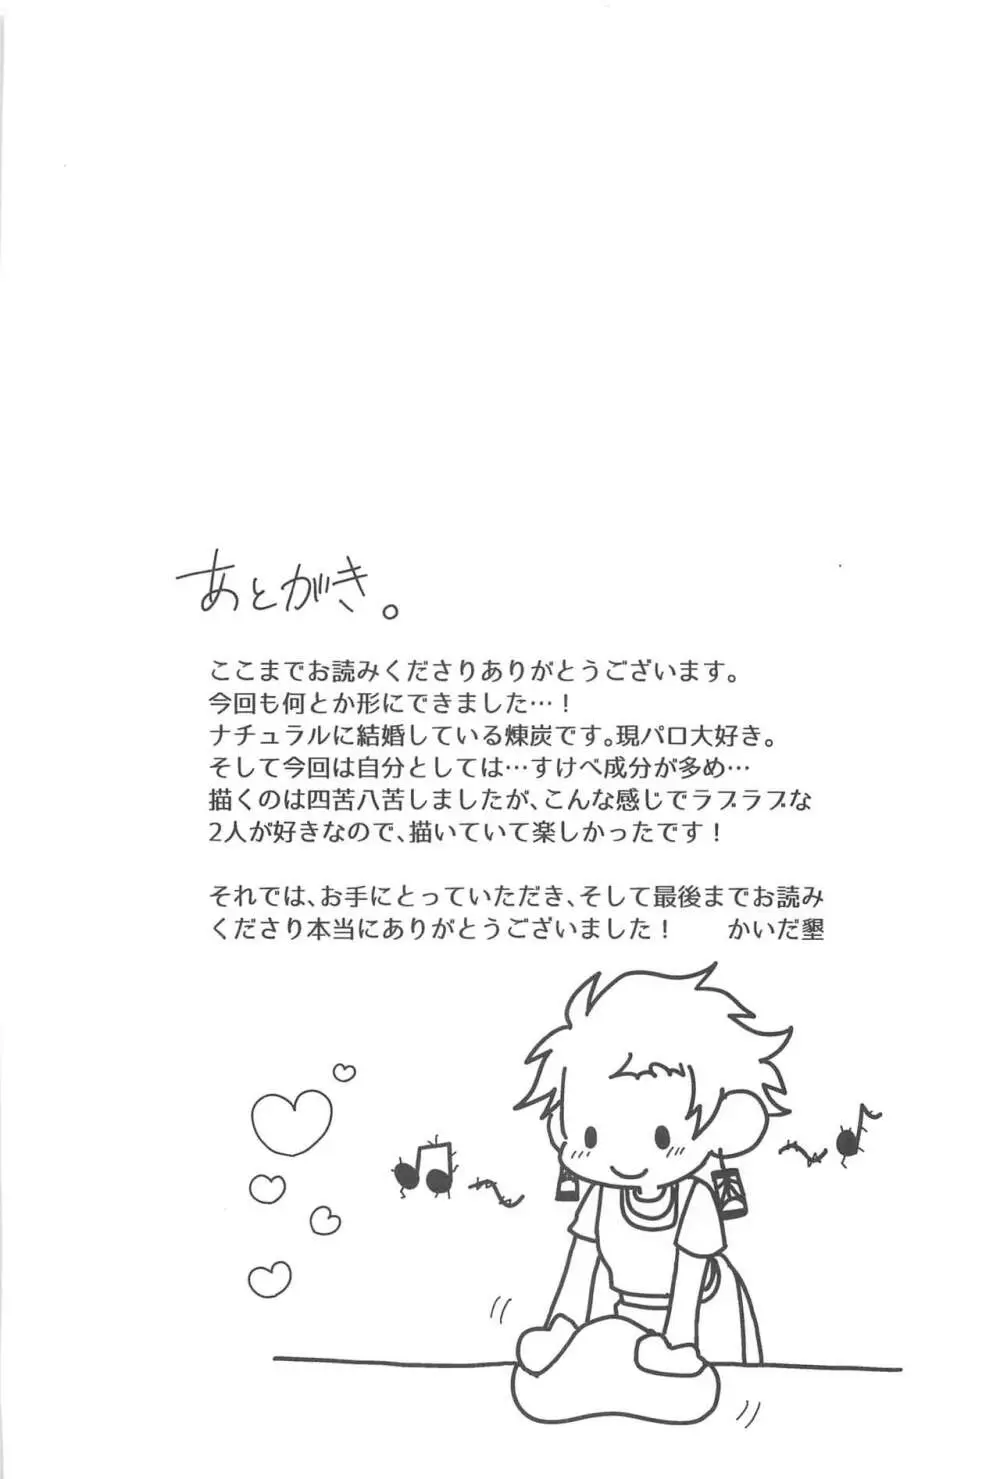 あとがき。
ここまでお読みくださりありがとうございます。
今回も何とか形にできました…！
ナチュラルに結婚している煉炭です。現パロ大好き。
そして今回は自分としては…すけべ成分が多め…
描くのは四苦八苦しましたが、こんな感じでラブラブな
2人が好きなので、描いていて楽しかったです！
それでは、お手にとっていただき、そして最後までお読み
くださり本当にありがとうございました！　かいだ墾